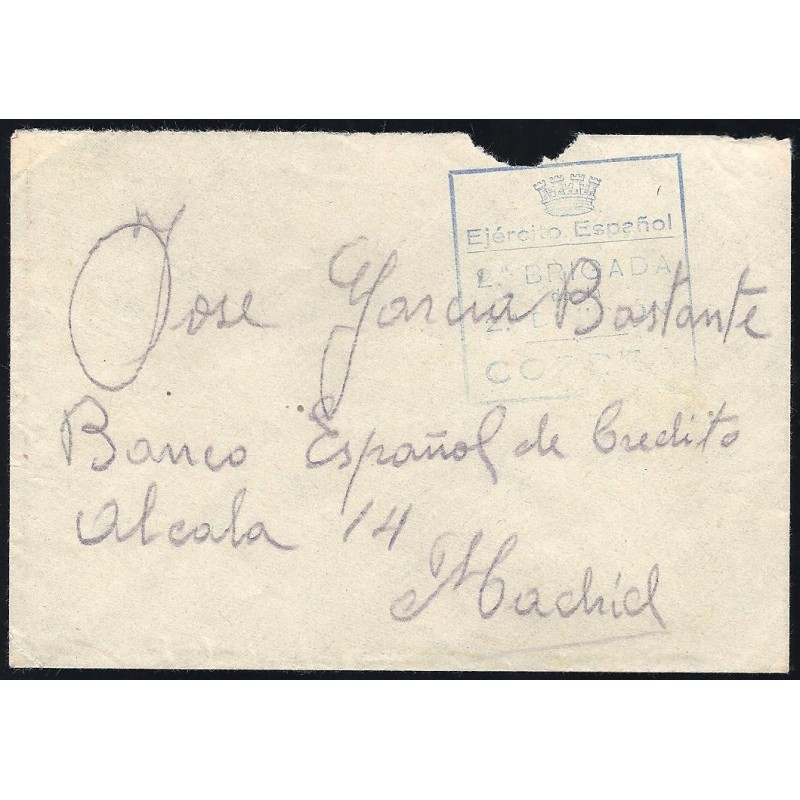 Ejército Español
2.ª BRIGADA
CORREO
Jose Garcia Bastante
Banco Español de Credito
Alcala 14
Madrid